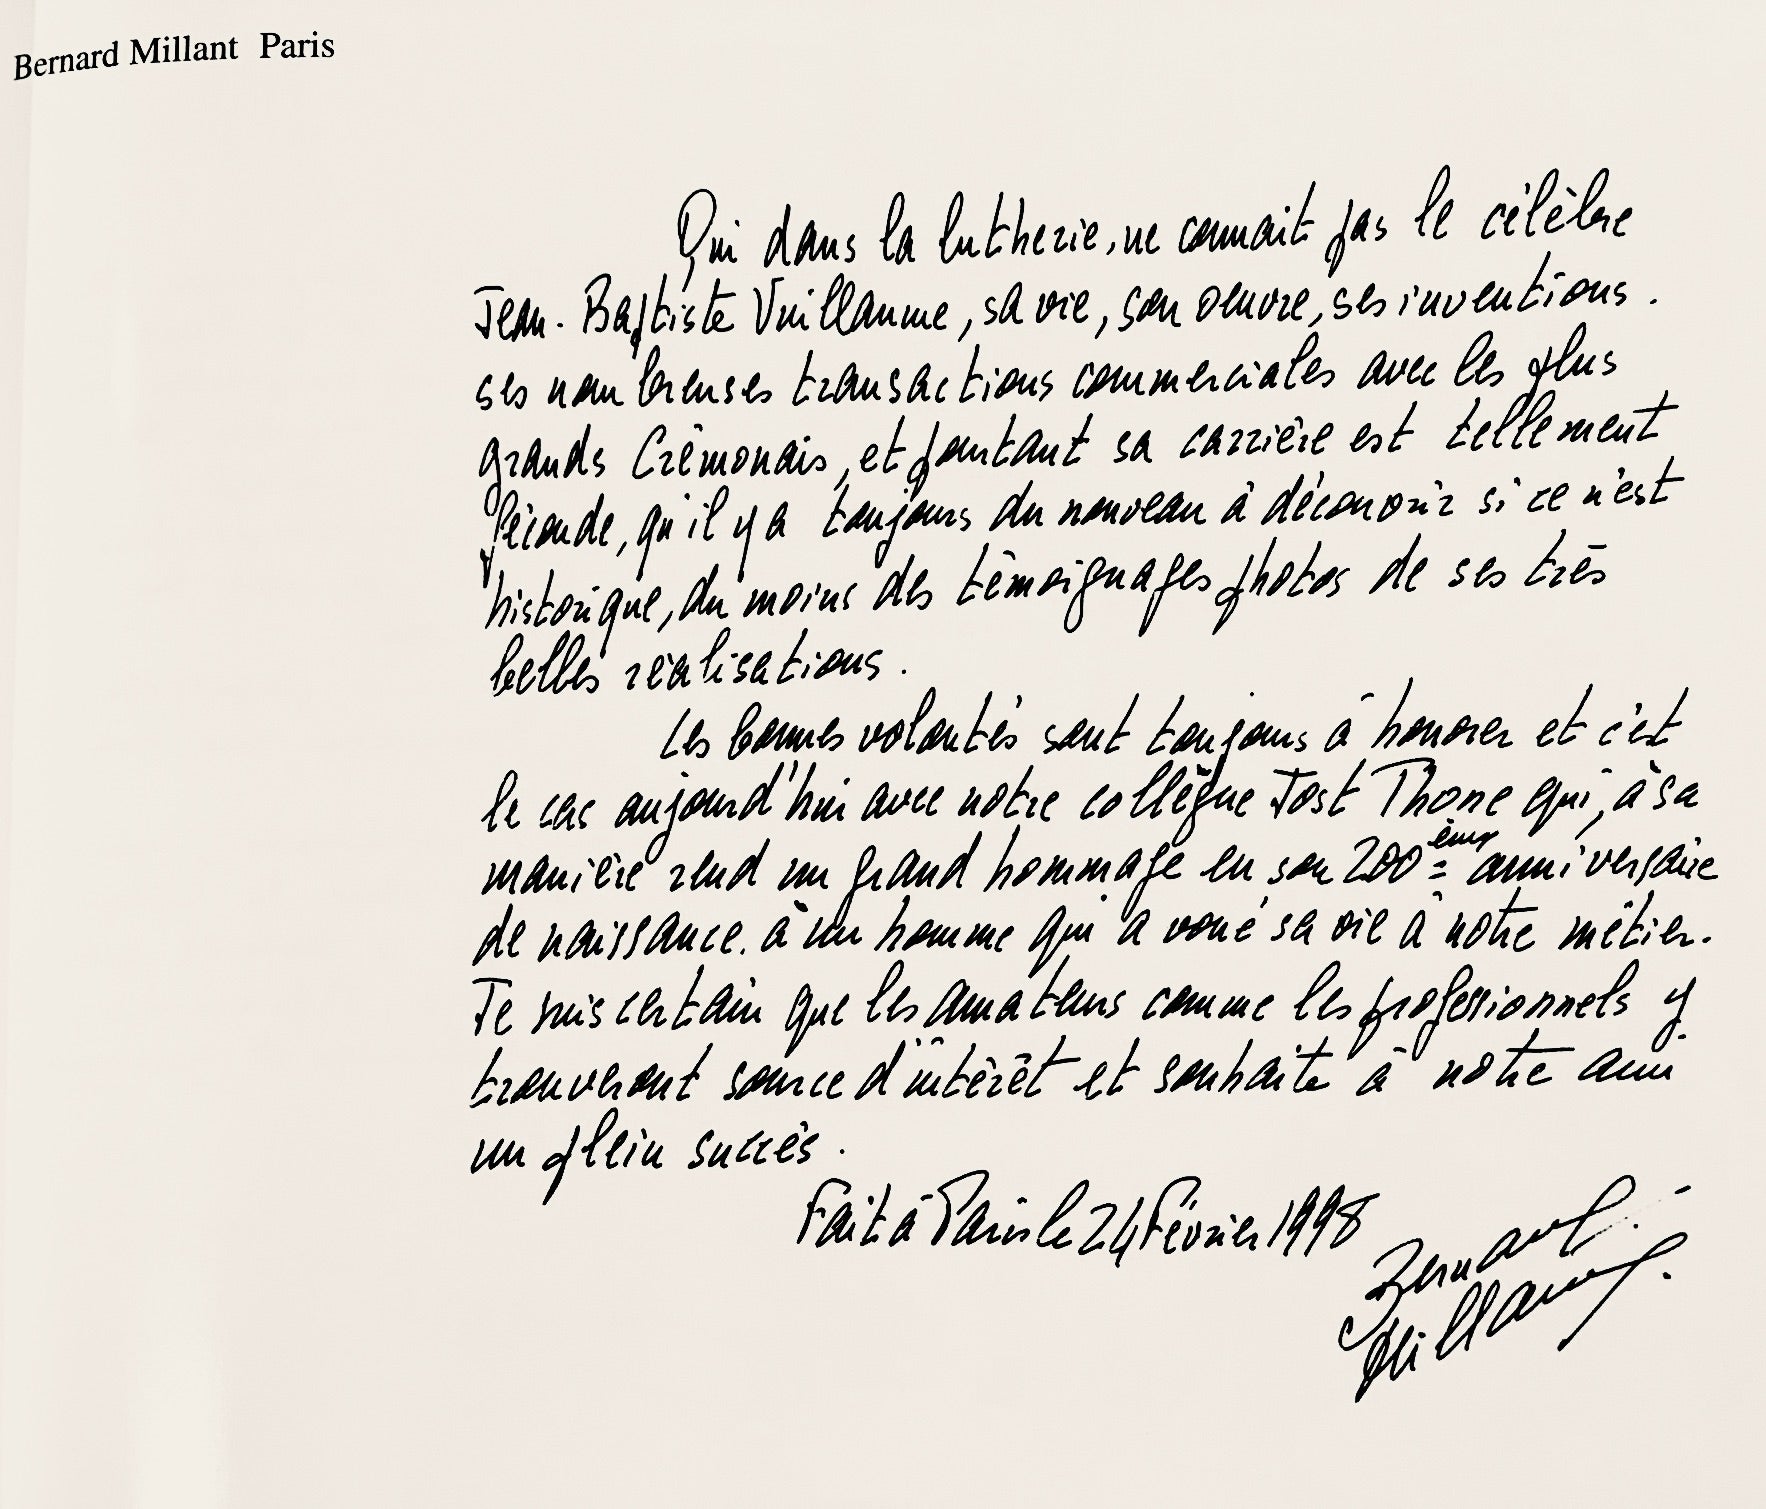 Bernard Millant Paris
Qui dans la lutherie, ne connait pas le célèbre
Jean-Baptiste Vuillaume, sa vie, son oeuvre, ses inventions.
ses nombreuses transactions commerciales avec les plus
grands Crémonais, et pourtant sa carrière est tellement
féconde, qu'il y a toujours du nouveau à découvrir si ce n'est
historique, du moins des témoignages photos de ses très
belles réalisations.
Les bonnes volontés sont toujours à honorer et c'est
le cas aujourd'hui avec notre collègue Jost Thöne qui, à sa
manière rend un grand hommage en son 200ème anniversaire
de naissance. à un homme qui a voué sa vie à notre métier.
Je suis certain que les amateurs comme les professionnels y
trouveront source d'intérêt et souhaite à notre ami
un plein succès.
Fait à Paris le 24 Février 1998
Bernard
Millant